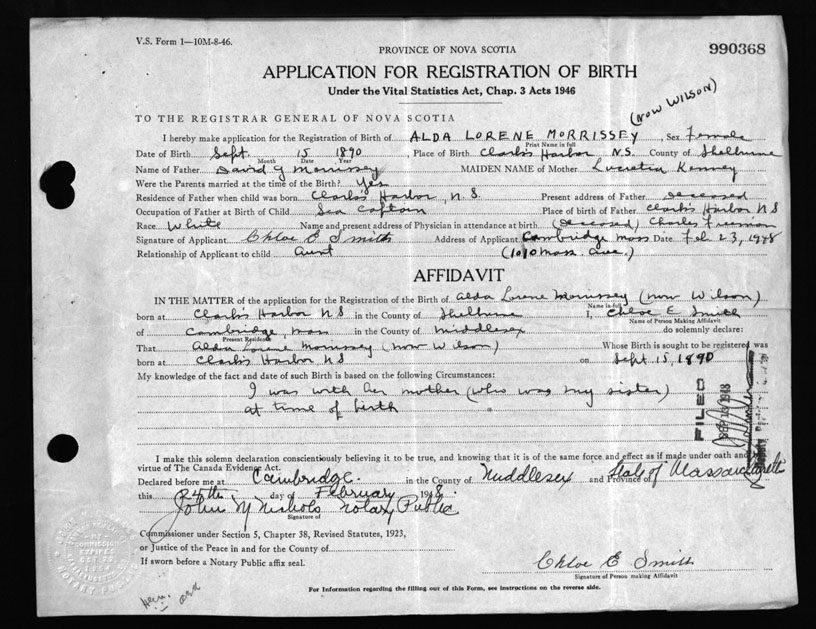 V.S. Form 1—10M-8-46.
PROVINCE OF NOVA SCOTIA
990368
APPLICATION FOR REGISTRATION OF BIRTH
Under the Vital Statistics Act, Chap. 3 Acts 1946
(NOW WILSON)
TO THE REGISTRAR GENERAL OF NOVA SCOTIA
I hereby make application for the Registration of Birth of ALDA LORENE MORRISSEY, Sex Female
Print Name in full
Date of Birth Sept. 15 1890, Place of Birth Clark's Harbor N.S. County of Shelburne
Month Date Year
Name of Father David G Morrissey MAIDEN NAME of Mother Lucretia Kenney
Were the Parents married at the time of the Birth? Yes
Residence of Father when child was born Clark's Harbor, N.S. Present address of Father deceased
Occupation of Father at Birth of Child Sea Captain Place of birth of Father Clark's Harbor N S
Race White Name and present address of Physician in attendance at birth (deceased) Charles Freeman
Signature of Applicant Chloe E Smith Address of Applicant Cambridge Mass Date Feb 23, 1948
Relationship of Applicant to child aunt (1010 Mass. Ave.)
AFFIDAVIT
IN THE MATTER of the application for the Registration of the Birth of Alda Lorene Morrissey (now Wilson)
Name in full
born at Clark's Harbor N S in the County of Shelburne I, Chloe E Smith
Name of Person Making Affidavit
of Cambridge, Mass in the County of Middlesex do solemnly declare:
Present Residence
That Alda Lorene Morrissey (now Wilson) Whose Birth is sought to be registered was
born at Clark's Harbor N S on Sept. 15, 1890
My knowledge of the fact and date of such Birth is based on the following Circumstances:
I was with her mother (who was my sister)
at time of birth
FILED
1948
I make this solemn declaration conscientiously believing it to be true, and knowing that it is of the same force and effect as if made under oath and
virtue of The Canada Evidence Act.
Declared before me at Cambridge in the County of Middlesex and Province of State of Massachusetts
this 24th day of February 1948.
John M Nichols Notary Public
Signature of
Commissioner under Section 5, Chapter 38, Revised Statutes, 1923,
or Justice of the Peace in and for the County of
If sworn before a Notary Public affix seal.
Chloe E Smith
Signature of Person making Affidavit
For Information regarding the filling out of this Form, see instructions on the reverse side.